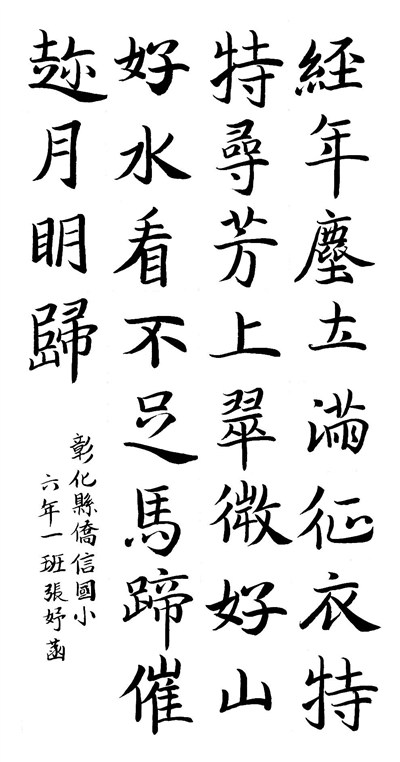 經年塵圡滿征衣特
特尋芳上翠微好山
好水看不足馬蹄催
趂月眀歸
彰化縣僑信國小
六年一班張妤菡